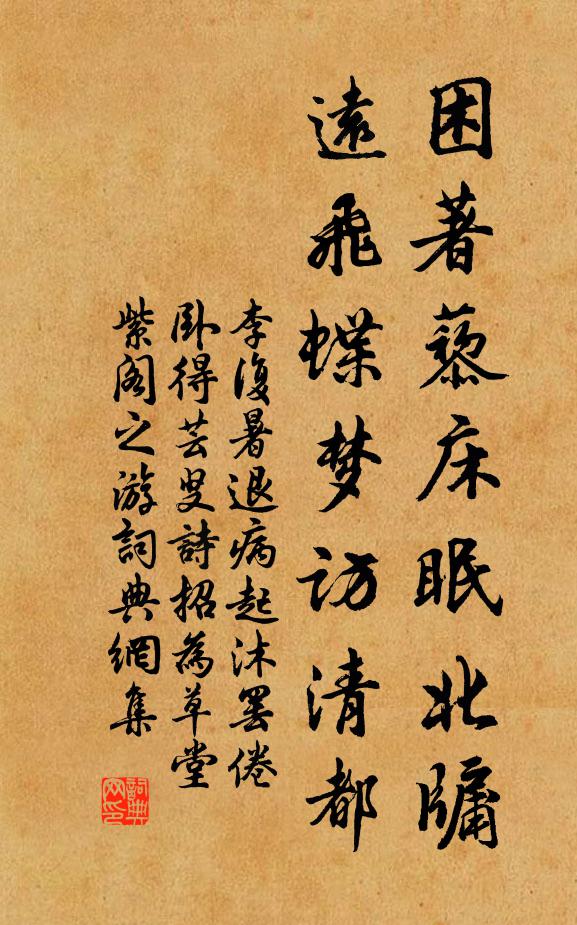 困著藜床眠北牖
遠飛蝶梦访清都
李復暑退病起沐罢倦
卧得芸叟詩招為草堂
紫阁之游詞典網集
詞典网印